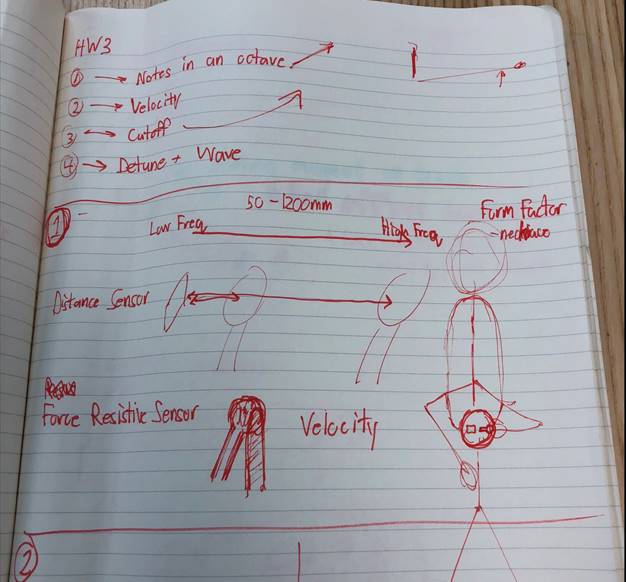 HW3
① → Notes in an octave
② → Velocity
③ → Cutoff
④ → Detune + Wave
①
50 - 1200mm
Low Freq
High Freq
Form Factor
- necklace
Distance Sensor
Force Resistive Sensor
Velocity
②